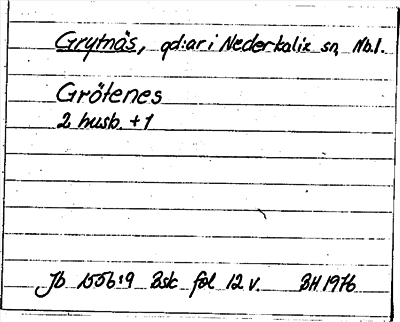 Grytnäs, gd:ar i Nederkalix sn, Nb.l.
Grötenes
2 husb. + 1
Jb 1556:9 Bsk fol 12 v. BH 1976